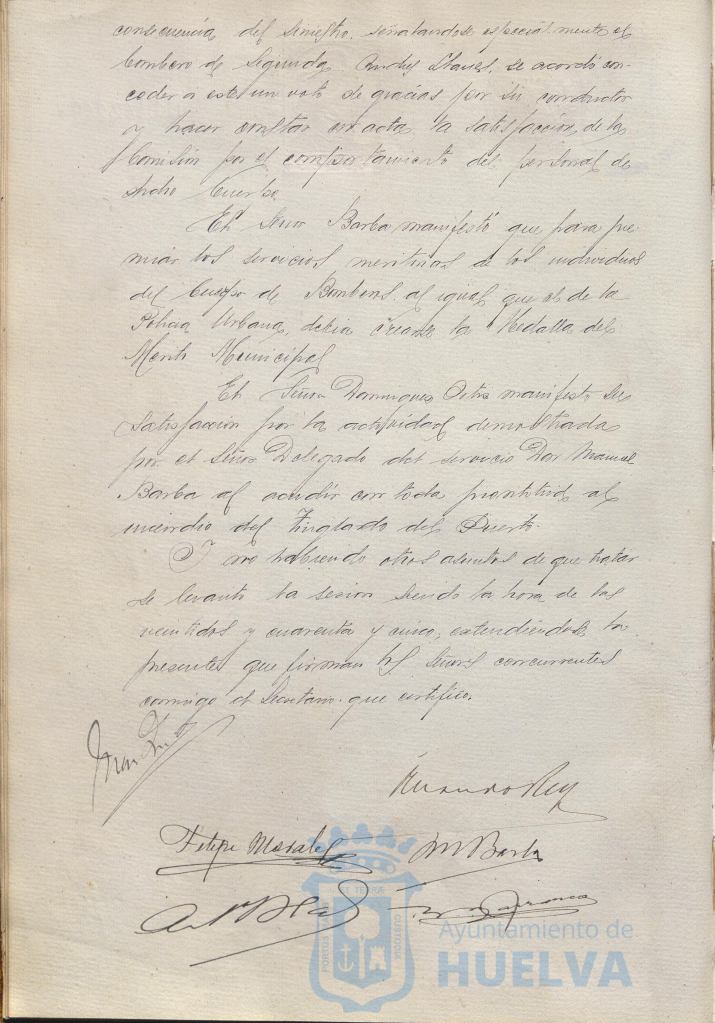 consecuencia del siniestro, señalandose especialmente el
bombero de segunda Andres Llanes, se acordó con-
ceder a este un voto de gracias por su conducta
y hacer constar en acta la satisfacción de la
Comisión por el comportamiento del personal de
dicho Cuerpo.
El Señor Barba manifestó que para pre-
miar los servicios meritorios de los individuos
del Cuerpo de Bomberos, al igual que el de la
Policia Urbana, debia crearse la Medalla del
Merito Municipal
El Señor Dominguez Ortiz manifestó su
satisfacción por la actividad demostrada
por el Señor Delegado del servicio Don Manuel
Barba al acudir con toda prontitud al
incendio del Tinglado del Puerto.
Y no habiendo otros asuntos de que tratar
se levantó la sesion siendo la hora de las
veintidos y cuarenta y cinco, extendiendose la
presente que firman los Señores concurrentes
conmigo el Secretario que certifico.
Felipe Morales
M Barba
PORTUS MARIS ET TERRÆ CUSTODIA
Ayuntamiento de
HUELVA